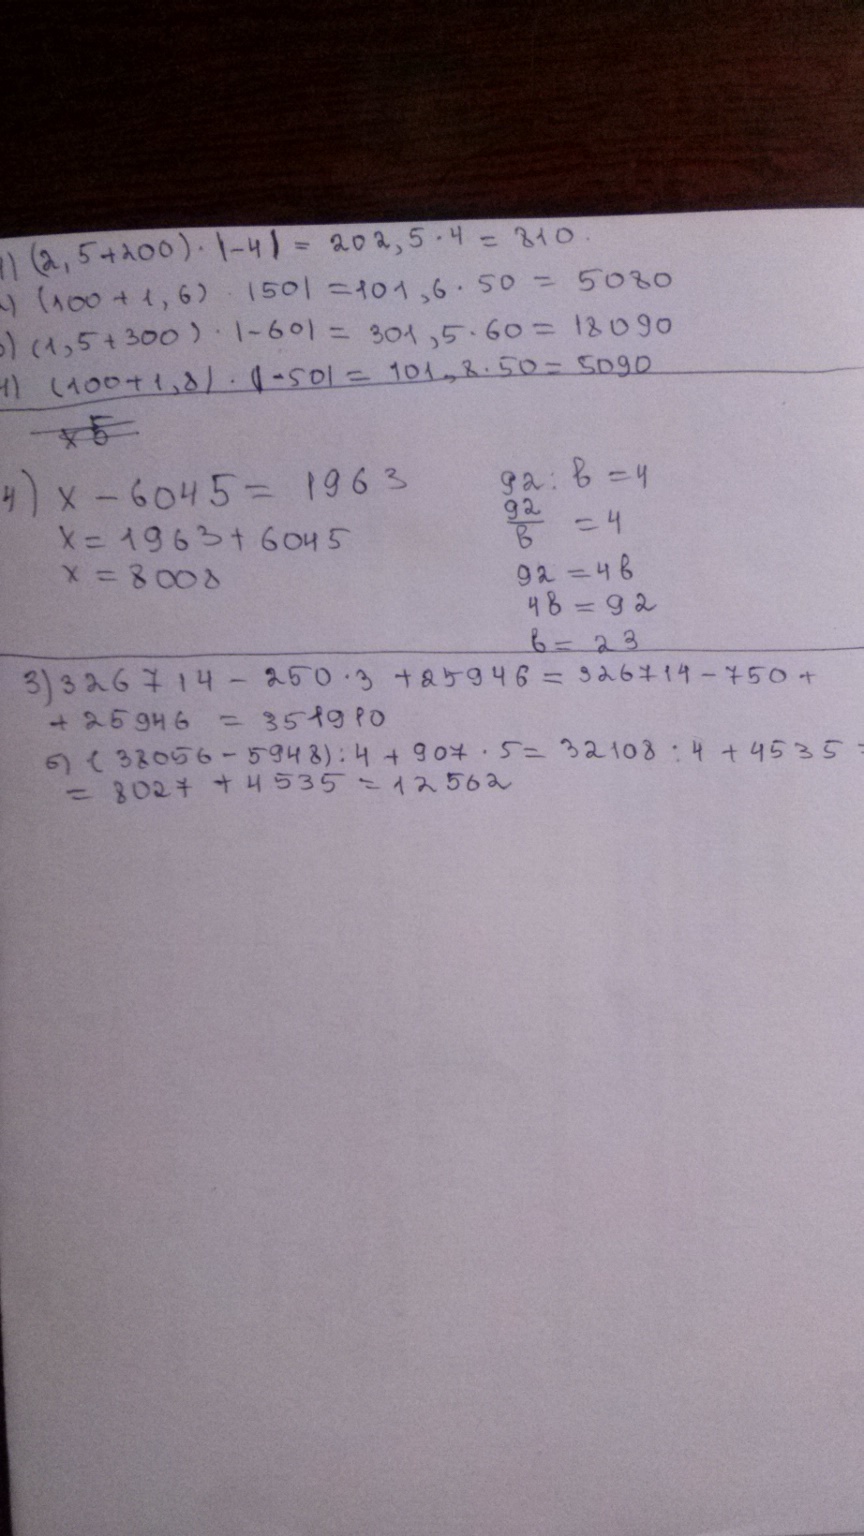 1) (2,5+200)·|-4| = 202,5·4 = 810.
2) (100+1,6)·|50| = 101,6·50 = 5080
3) (1,5+300)·|-60| = 301,5·60 = 18090
4) (100+1,8)·|-50| = 101,8·50 = 5090
x 5
4) x - 6045 = 1963
x = 1963 + 6045
x = 8008
92 : b = 4
92/b = 4
92 = 4b
4b = 92
b = 23
3) 326714 - 250·3 + 25946 = 326714 - 750 +
+ 25946 = 351910
б) (38056 - 5948) : 4 + 907·5 = 32108 : 4 + 4535 =
= 8027 + 4535 = 12562